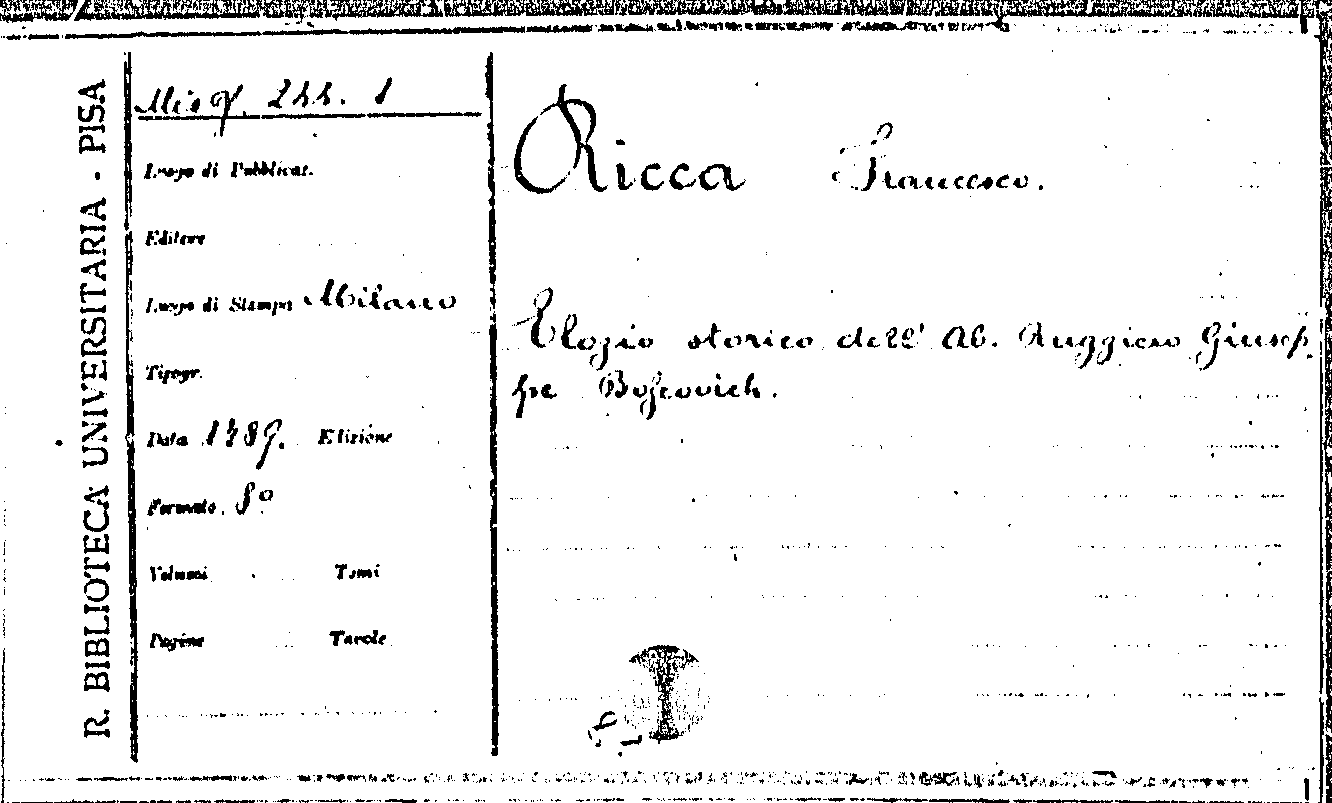 R. BIBLIOTECA UNIVERSITARIA - PISA
Misc. 244. 1
Luogo di Pubblicaz.
Editore
Luogo di Stampa Milano
Tipogr.
Data 1789. Edizione
Formato 8º
Volumi Tomi
Pagine Tavole
Ricca Francesco.
Elogio storico dell' Ab. Ruggiero Giusep-
pe Boscovich.